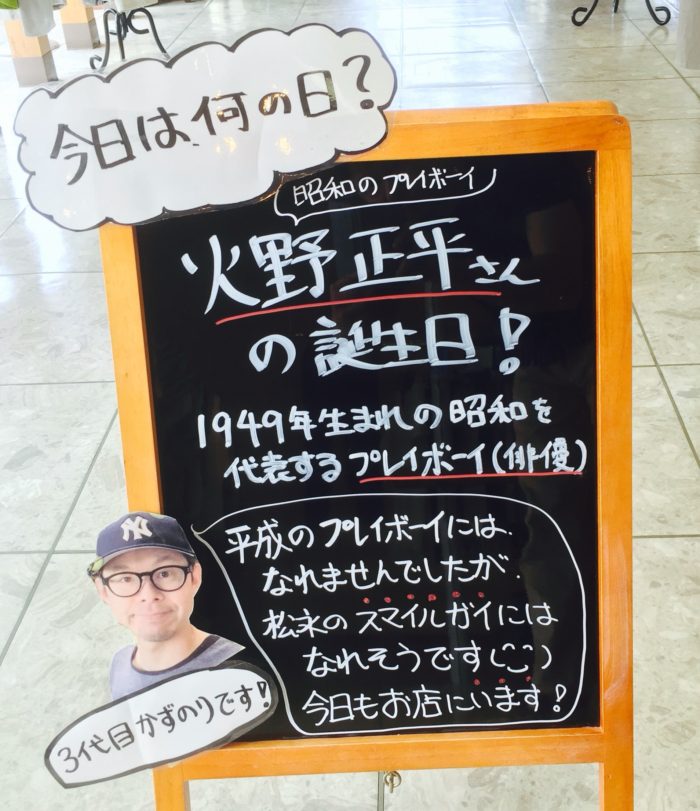 今日は何の日?
昭和のプレイボーイ
火野正平さん
の誕生日!
1949年生まれの昭和を
代表するプレイボーイ(俳優)
平成のプレイボーイには
なれませんでしたが
松永のスマイルガイには
なれそうです(^_^)
今日もお店にいます!
NY
3代目かずのりです!